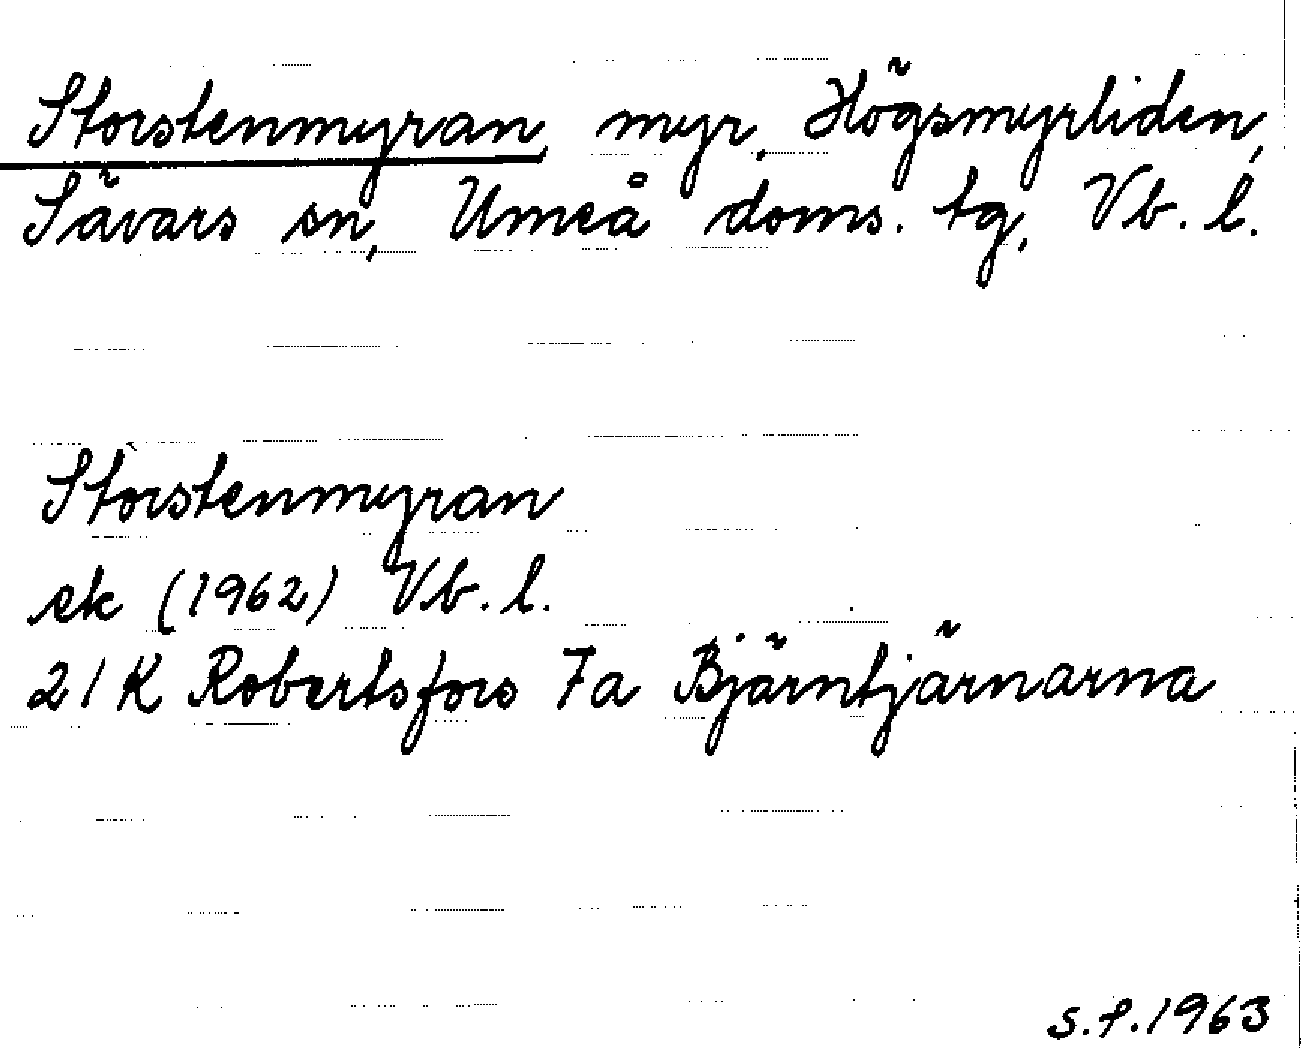 Storstenmyran, myr, Högsmyrliden,
Sävars sn, Umeå doms. tg, Vb. l.
Storstenmyran
ek (1962) Vb. l.
21K Robertsfors 7a Bjärntjärnarna
S.P.1963